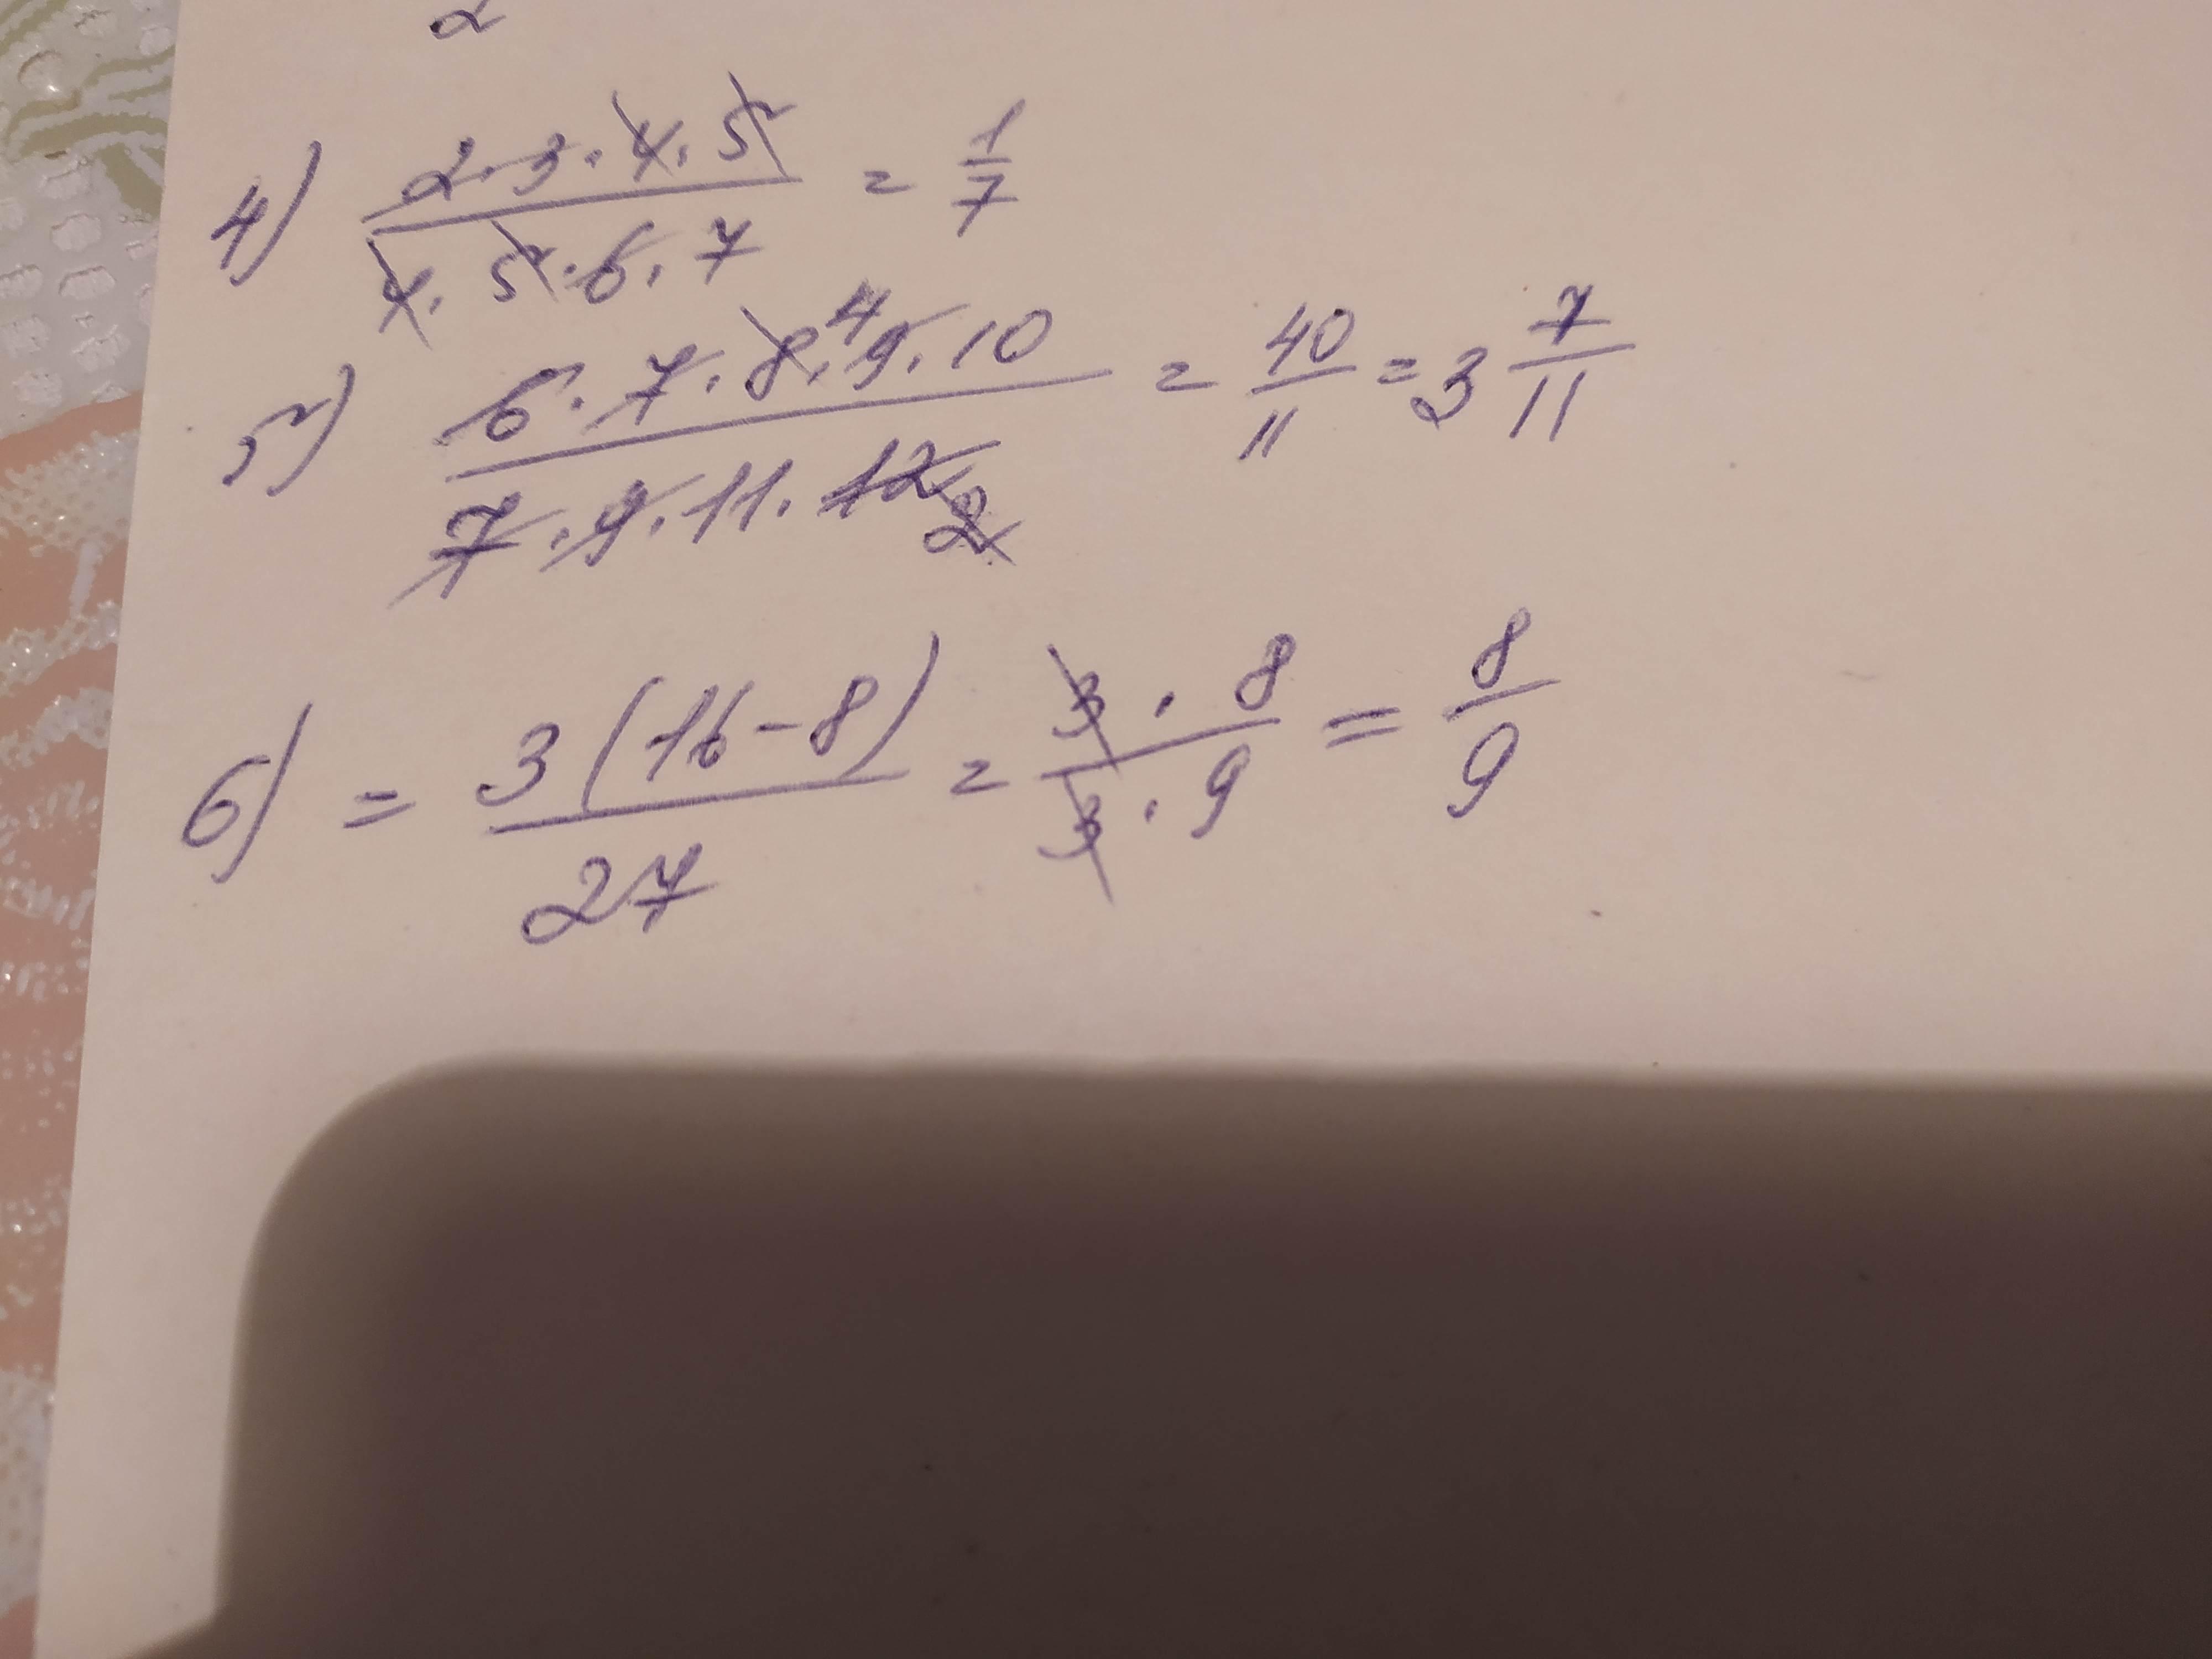 2
4) (2·3·4·5)/(4·5·6·7) = 1/7
5) (6·7·8⁴·9·10)/(7·9·11·12₂) = 40/11 = 3 7/11
6) = 3(16-8)/27 = (3·8)/(3·9) = 8/9